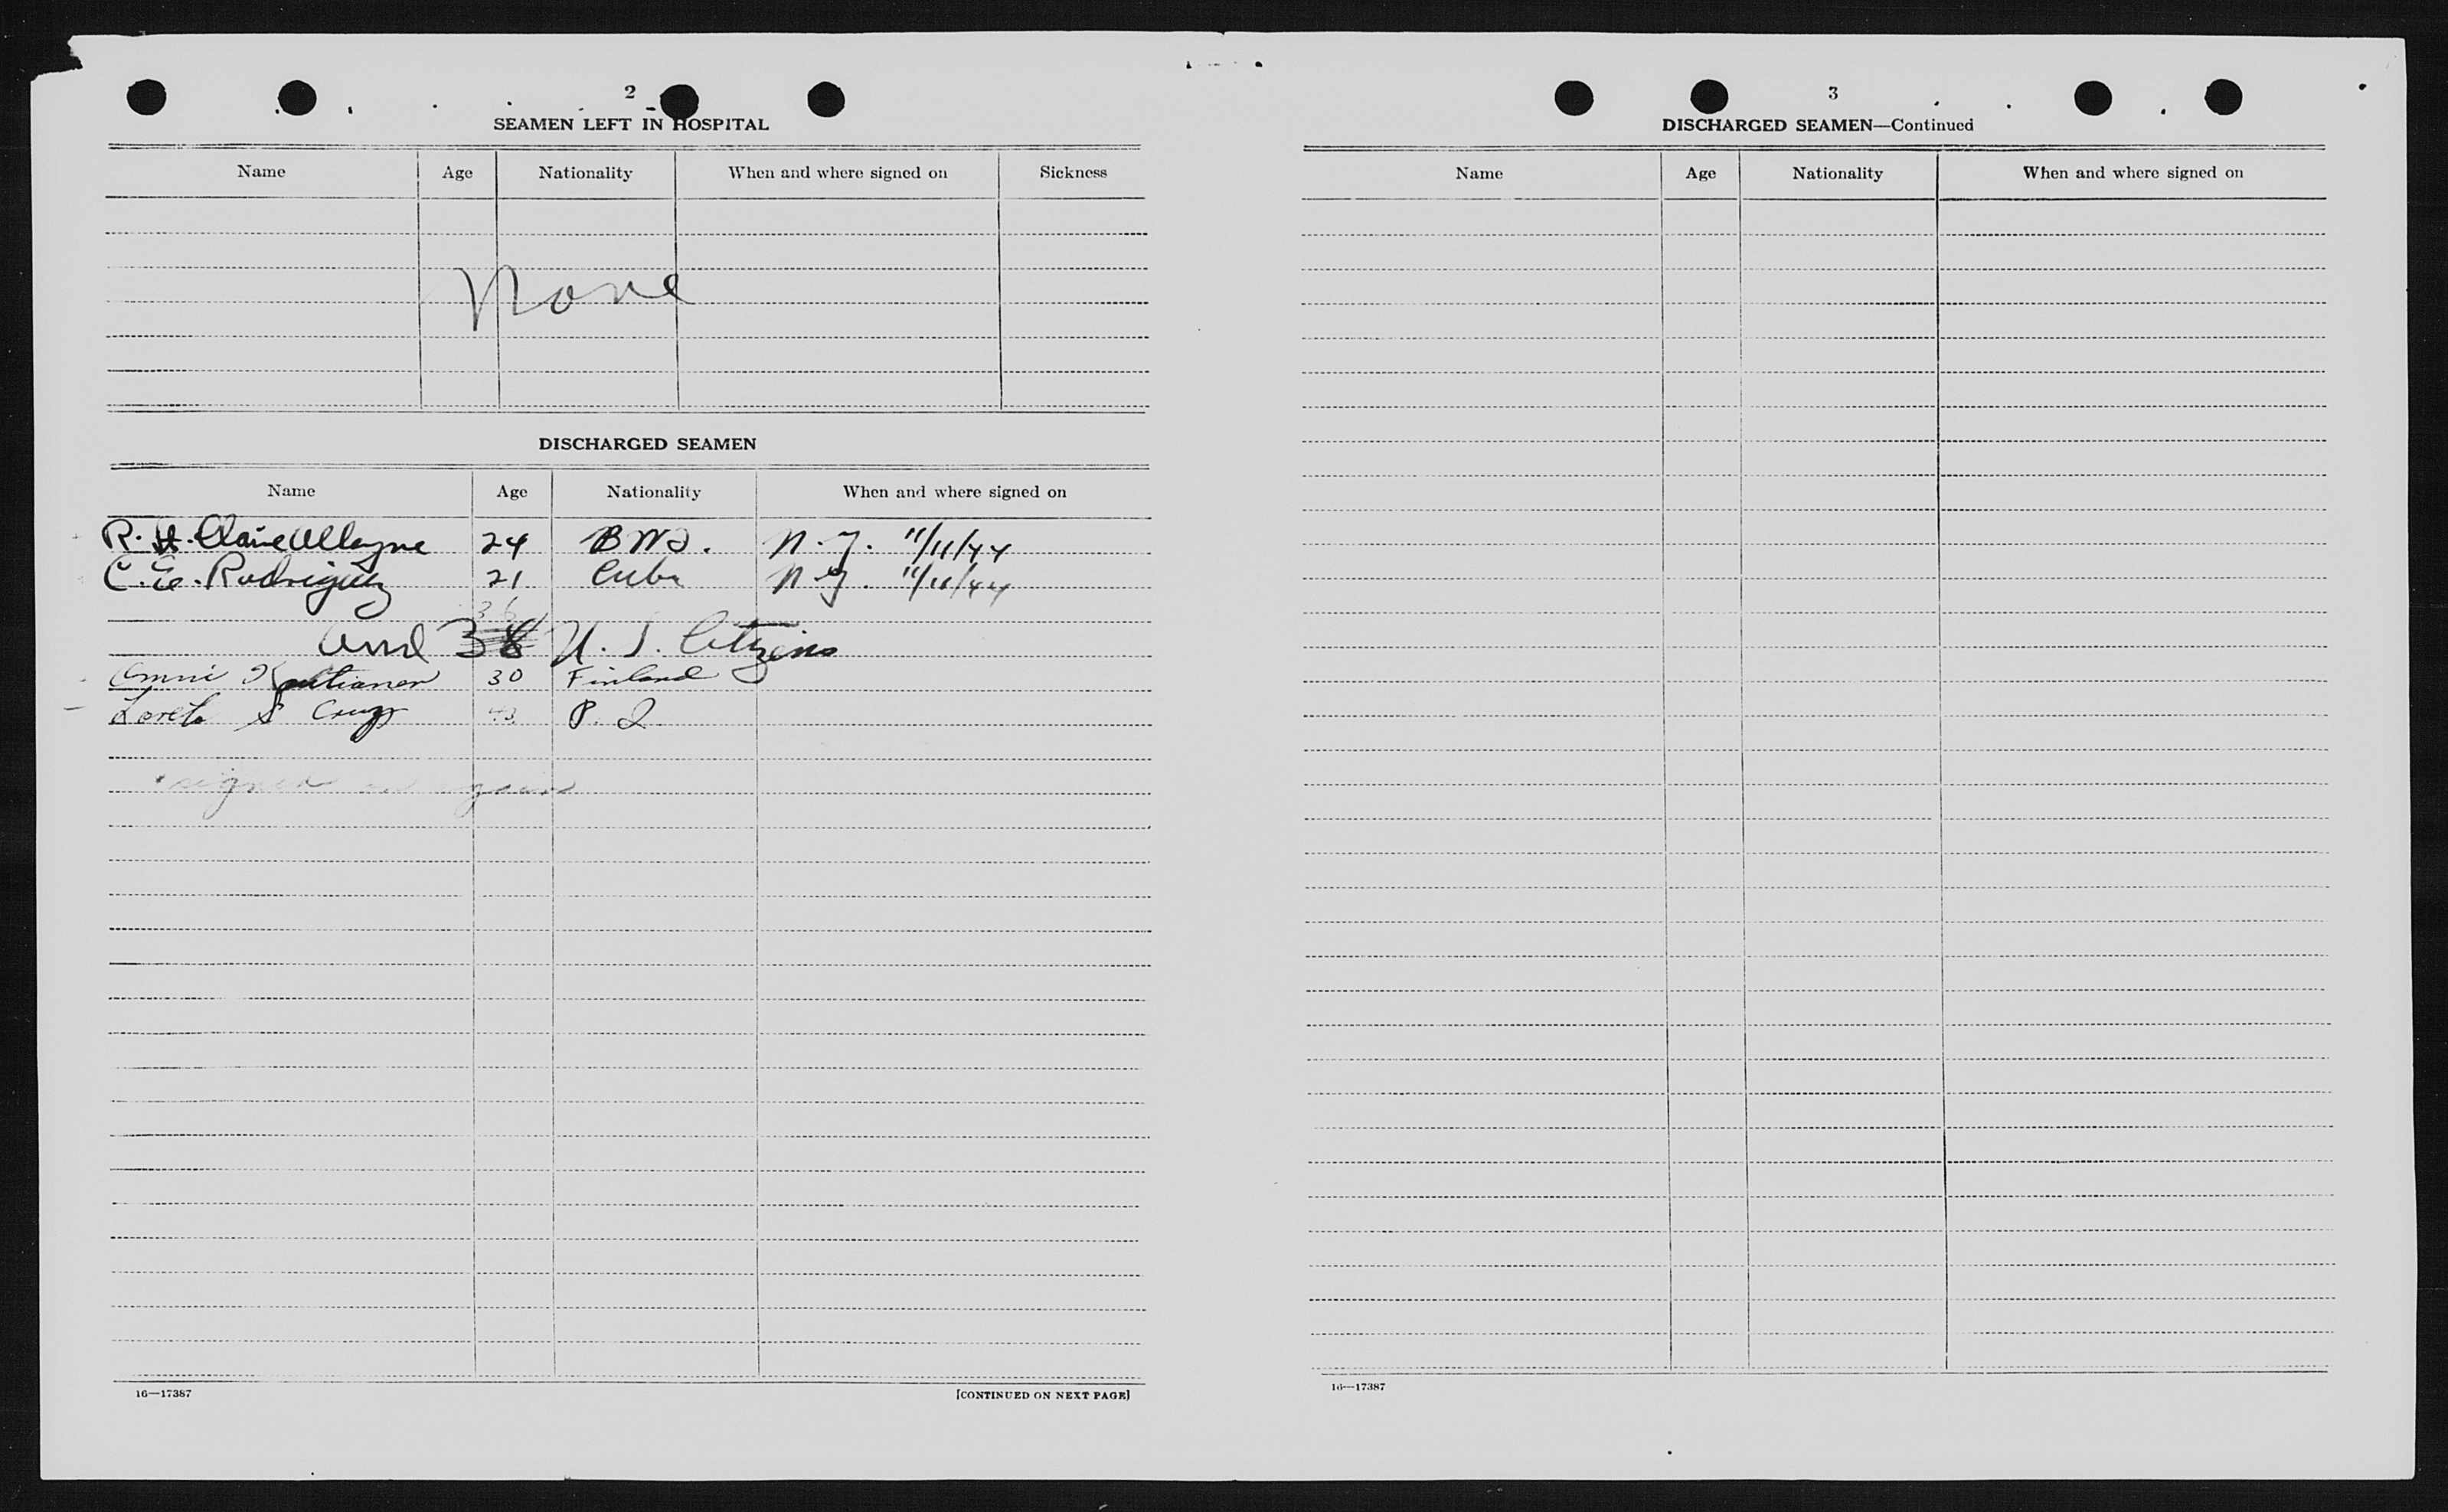 2
SEAMEN LEFT IN HOSPITAL
Name Age Nationality When and where signed on Sickness
None
DISCHARGED SEAMEN
Name Age Nationality When and where signed on
R. H. Claire Alleyne 24 B W I. N.Y. 11/11/44
C. E. Rodriguez 21 Cuba N.Y. 11/11/44
36
and 38 U. S. Citizens
30 Finland
Loreto S Cruz 43 P. I.
signed on again
16—17387 [CONTINUED ON NEXT PAGE]
3
DISCHARGED SEAMEN—Continued
Name Age Nationality When and where signed on
16—17387